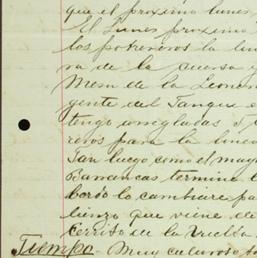 que el próximo lunes,
El Lunes próximo
los potreros la lin
ra de la cuerva y
Mesa de la Leona
gente del Tanque e
tengo arregladas
reros para la linea
Tan luego como el may
Barrancas termine l
bordo lo cambiare pa
lienzo que viene de
cerrito de la Vuelta
Tiempo - Muy caluroso,